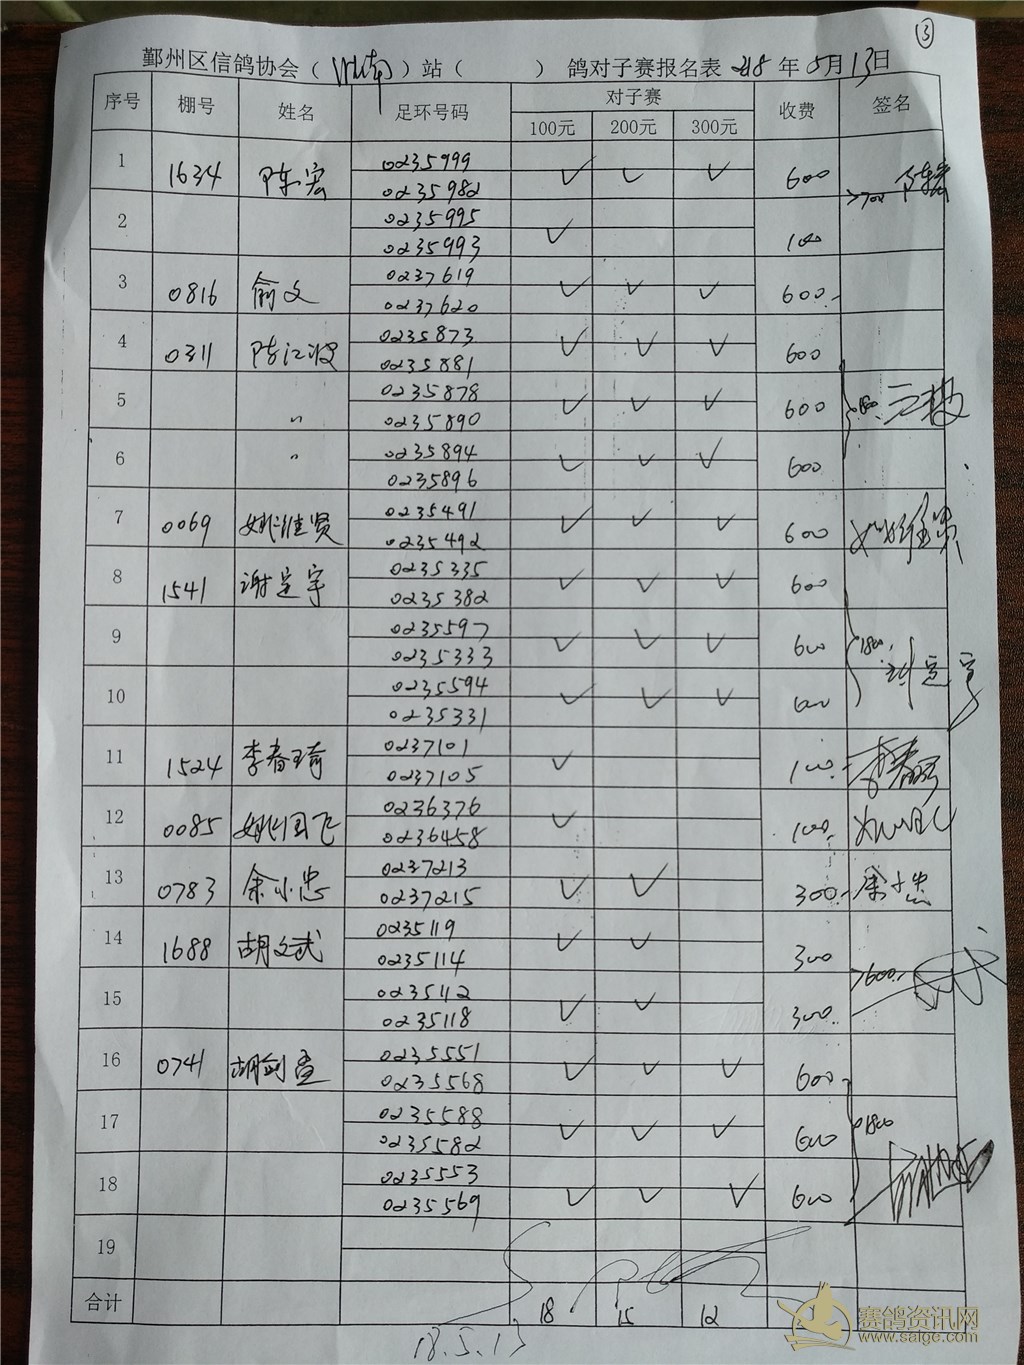 ③
鄞州区信鸽协会（ ）站（ ） 鸽对子赛报名表 218 年 5月 13日
序号 棚号 姓名 足环号码 对子赛 收费 签名
100元 200元 300元
1 1634 陈宏 0235999 ✓ ✓ ✓ 600 >700 陈宏
0235982
2 0235995 ✓ 100
0235993
3 0816 俞文 0237619 ✓ ✓ ✓ 600.-
0237620
4 0311 陈江波 0235873 ✓ ✓ ✓ 600
0235881
5 〃 0235878 ✓ ✓ ✓ 600 1800
0235890
6 〃 0235894 ✓ ✓ ✓ 600
0235896
7 0069 姚维贤 0235491 ✓ ✓ ✓ 600 姚维贤
0235492
8 1541 谢定宇 0235335 ✓ ✓ ✓ 600
0235382
9 0235597 ✓ ✓ ✓ 600 1800. 谢定宇
0235333
10 0235594 ✓ ✓ ✓ 600
0235331
11 1524 李春琦 0237101 ✓ 100.-
0237105
12 0085 姚国飞 0236376 ✓ 100.
0236458
13 0783 余小忠 0237213 ✓ ✓ 300.- 余小忠
0237215
14 1688 胡文武 0235119 ✓ ✓ 300 >600.-
0235114
15 0235112 ✓ ✓ 300.
0235118
16 0741 胡剑 0235551 ✓ ✓ ✓ 600.-
0235568
17 0235588 ✓ ✓ ✓ 600 1800
0235582
18 0235553 ✓ ✓ ✓ 600
0235569
19
合计 18 15 12
18.5.13
赛鸽资讯网
www.saige.com